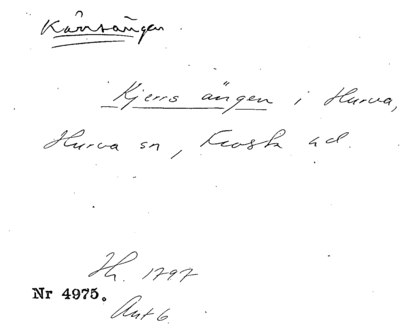 Kärrsängen
Kjerrs ängen i Hurva,
Hurva sn, Frosta hd.
Hh. 1797
Nr 4975.
Ant 6